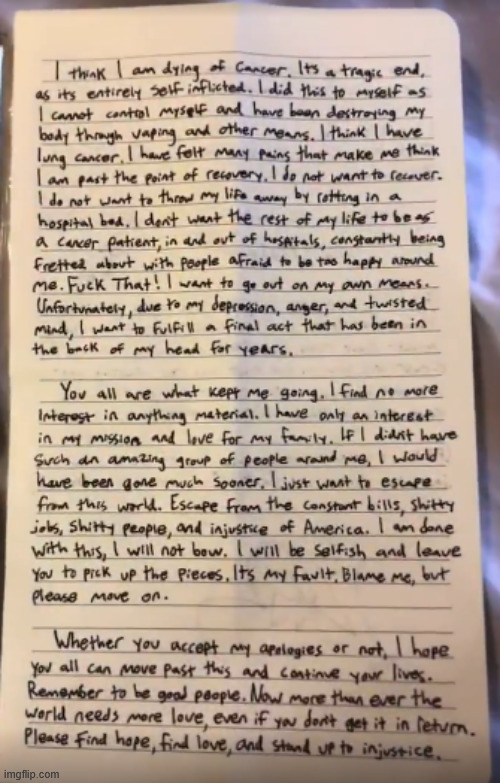 I think I am dying of cancer. Its a tragic end,
as its entirely self inflicted. I did this to myself as
I cannot control myself and have been destroying my
body through vaping and other means. I think I have
lung cancer. I have felt many pains that make me think
I am past the point of recovery. I do not want to recover.
I do not want to throw my life away by rotting in a
hospital bed. I dont want the rest of my life to be as
a cancer patient, in and out of hospitals, constantly being
fretted about with people afraid to be too happy around
me. Fuck That! I want to go out on my own means.
Unfortunately, due to my depression, anger, and twisted
mind, I want to fulfill a final act that has been in
the back of my head for years.
You all are what kept me going. I find no more
interest in anything material. I have only an interest
in my mission and love for my family. If I didnt have
such an amazing group of people around me, I would
have been gone much sooner. I just want to escape
from this world. Escape from the constant bills, shitty
jobs, shitty people, and injustice of America. I am done
with this, I will not bow. I will be selfish and leave
you to pick up the pieces. Its my fault, Blame me, but
please move on.
Whether you accept my apologies or not, I hope
you all can move past this and continue your lives.
Remember to be good people. Now more than ever the
world needs more love, even if you dont get it in return.
Please find hope, find love, and stand up to injustice.
imgflip.com